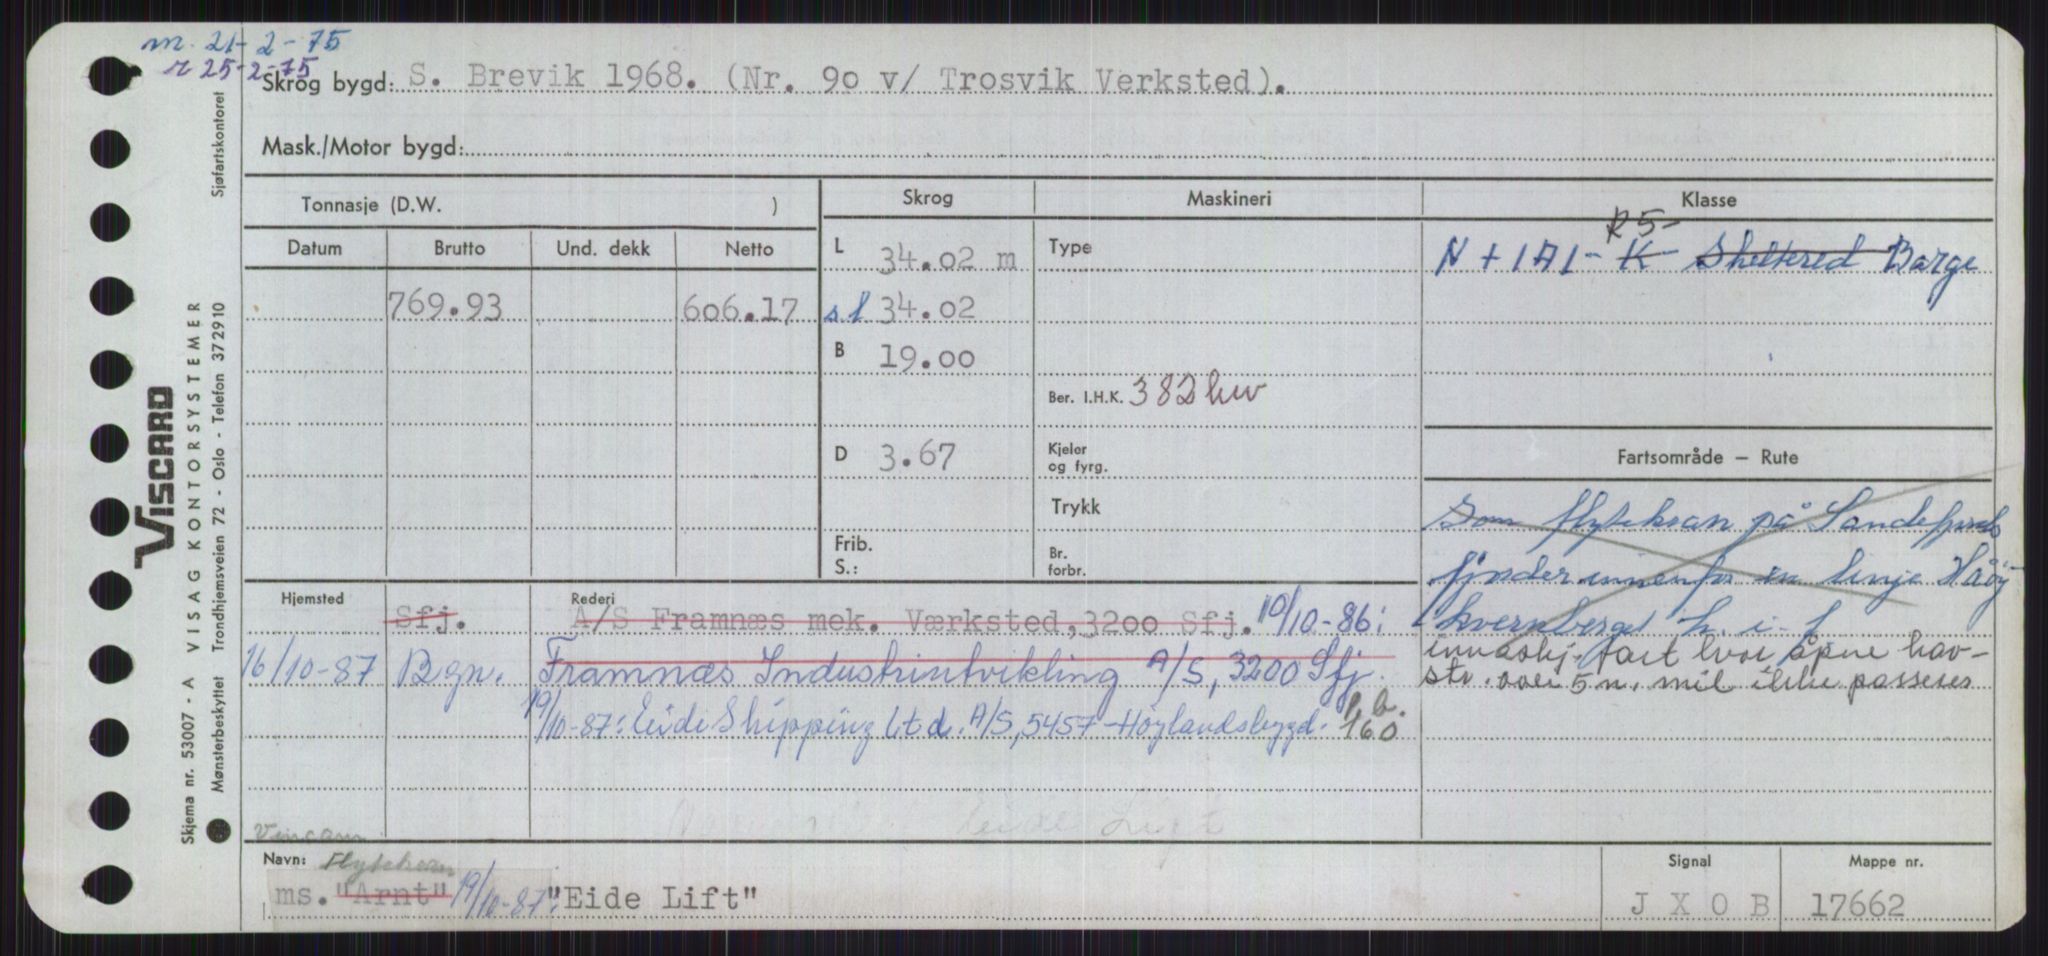 m. 21-2-75
r 25-2-75
Skrog bygd: S. Brevik 1968. (Nr. 90 v/ Trosvik Verksted).
Mask./Motor bygd:
Tonnasje (D.W. )
Skrog
Maskineri
Klasse
Datum
Brutto
Und. dekk
Netto
769.93
606.17
L 34.02 m
s.l 34.02
B 19.00
D 3.67
Frib.
S.:
Type
Ber. I.H.K. 382 kw
Kjeler
og fyrg.
Trykk
Br.
forbr.
R5-
N + 1A1 - K - Sheltered Barge
Fartsområde – Rute
Som flytekran på Sandefjords
fjorden innenfor en linje Håøy
kvernberget h. i. f
innaskj. fart hvor åpne hav-
str. over 5 n. mil ikke passeres
Hjemsted
Rederi
Sfj.
A/S Framnæs mek. Værksted, 3200 Sfj.
10/10-86:
16/10-87 Bgn.
Framnæs Industriutvikling A/S, 3200 Sfj.
19/10-87: Eide Shipping Ltd. A/S, 5457 Höylandsbygd.
p.b.
160
Eide Lift
Navn:
Flytekran
ms. "Arnt"
19/10-87:
"Eide Lift"
Signal
J X O B
Mappe nr.
17662
Sjøfartskontoret
VISCARD
VISAG KONTORSYSTEMER
Trondhjemsveien 72 - Oslo - Telefon 372910
Skjema nr. 53007 - A
Mønsterbeskyttet